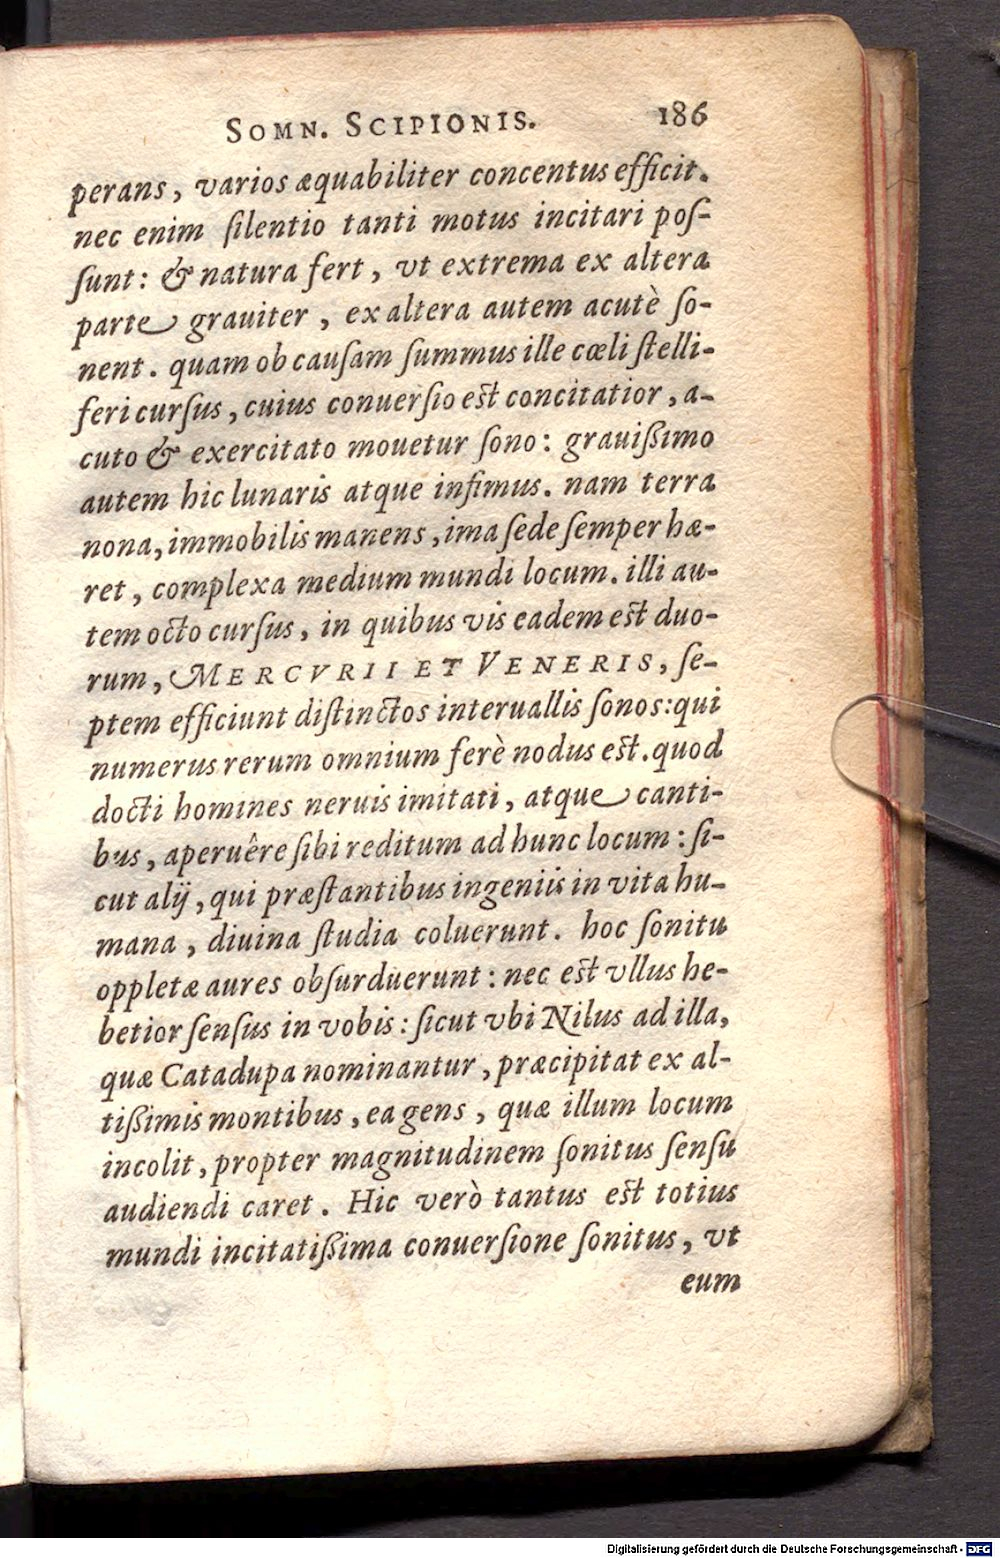 SOMN. SCIPIONIS. 186
perans, varios æquabiliter concentus efficit.
nec enim ſilentio tanti motus incitari poſ-
ſunt: & natura fert, vt extrema ex altera
parte grauiter, ex altera autem acutè ſo-
nent. quam ob cauſam ſummus ille cœli ſtelli-
feri curſus, cuius conuerſio est concitatior, a-
cuto & exercitato mouetur ſono: grauißimo
autem hic lunaris atque infimus. nam terra
nona, immobilis manens, ima ſede ſemper hæ-
ret, complexa medium mundi locum. illi au-
tem octo curſus, in quibus vis eadem est duo-
rum, MERCVRII ET VENERIS, ſe-
ptem efficiunt diſtinctos interuallis ſonos: qui
numerus rerum omnium ferè nodus est. quod
docti homines neruis imitati, atque canti-
bus, aperuêre ſibi reditum ad hunc locum: ſi-
cut alij, qui præſtantibus ingeniis in vita hu-
mana, diuina ſtudia coluerunt. hoc ſonitu
oppletæ aures obſurduerunt: nec est vllus he-
betior ſenſus in vobis: ſicut vbi Nilus ad illa,
quæ Catadupa nominantur, præcipitat ex al-
tißimis montibus, ea gens, quæ illum locum
incolit, propter magnitudinem ſonitus ſenſu
audiendi caret. Hic verò tantus est totius
mundi incitatißima conuerſione ſonitus, vt
eum
Digitalisierung gefördert durch die Deutsche Forschungsgemeinschaft - DFG